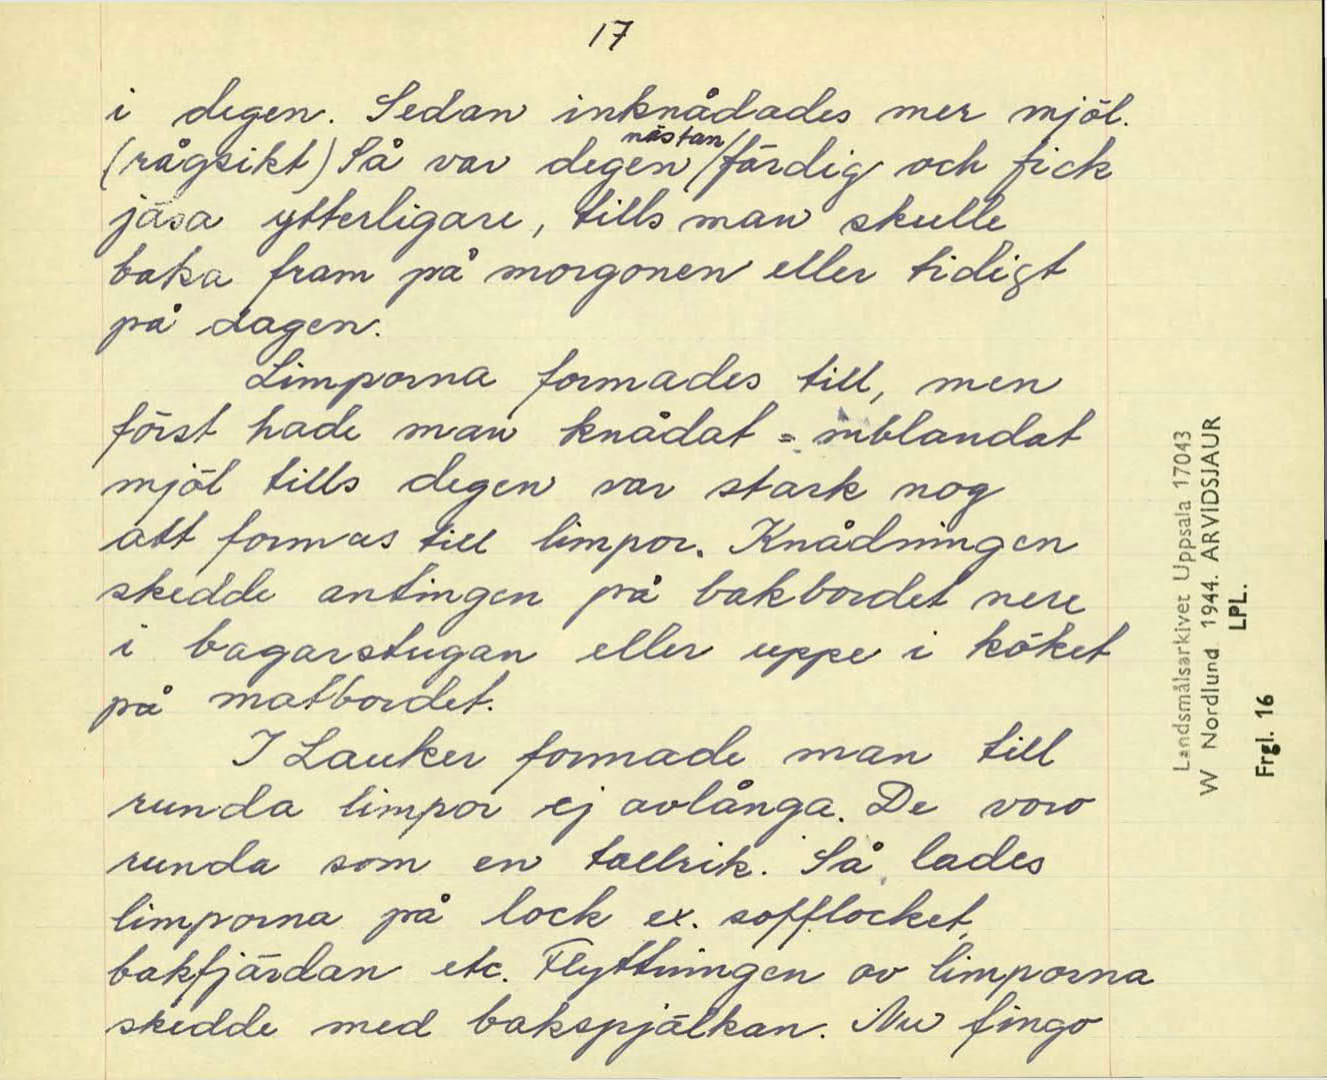 17
i degen. Sedan inknådades mer mjöl.
(rågsikt) Så var degen nästan färdig och fick
jäsa ytterligare, tills man skulle
baka fram på morgonen eller tidigt
på dagen.
Limporna formades till, men
först hade man knådat = inblandat
mjöl tills degen var stark nog
att formas till limpor. Knådningen
skedde antingen på bakbordet nere
i bagarstugan eller uppe i köket
på matbordet.
I Lauker formade man till
runda limpor ej avlånga. De voro
runda som en tallrik. Så lades
limporna på lock ex. sofflocket,
bakfjärdan etc. Flyttningen av limporna
skedde med bakspjälkan. Nu fingo
Landsmålsarkivet Uppsala 17043
W Nordlund 1944. ARVIDSJAUR
LPL.
Frgl. 16